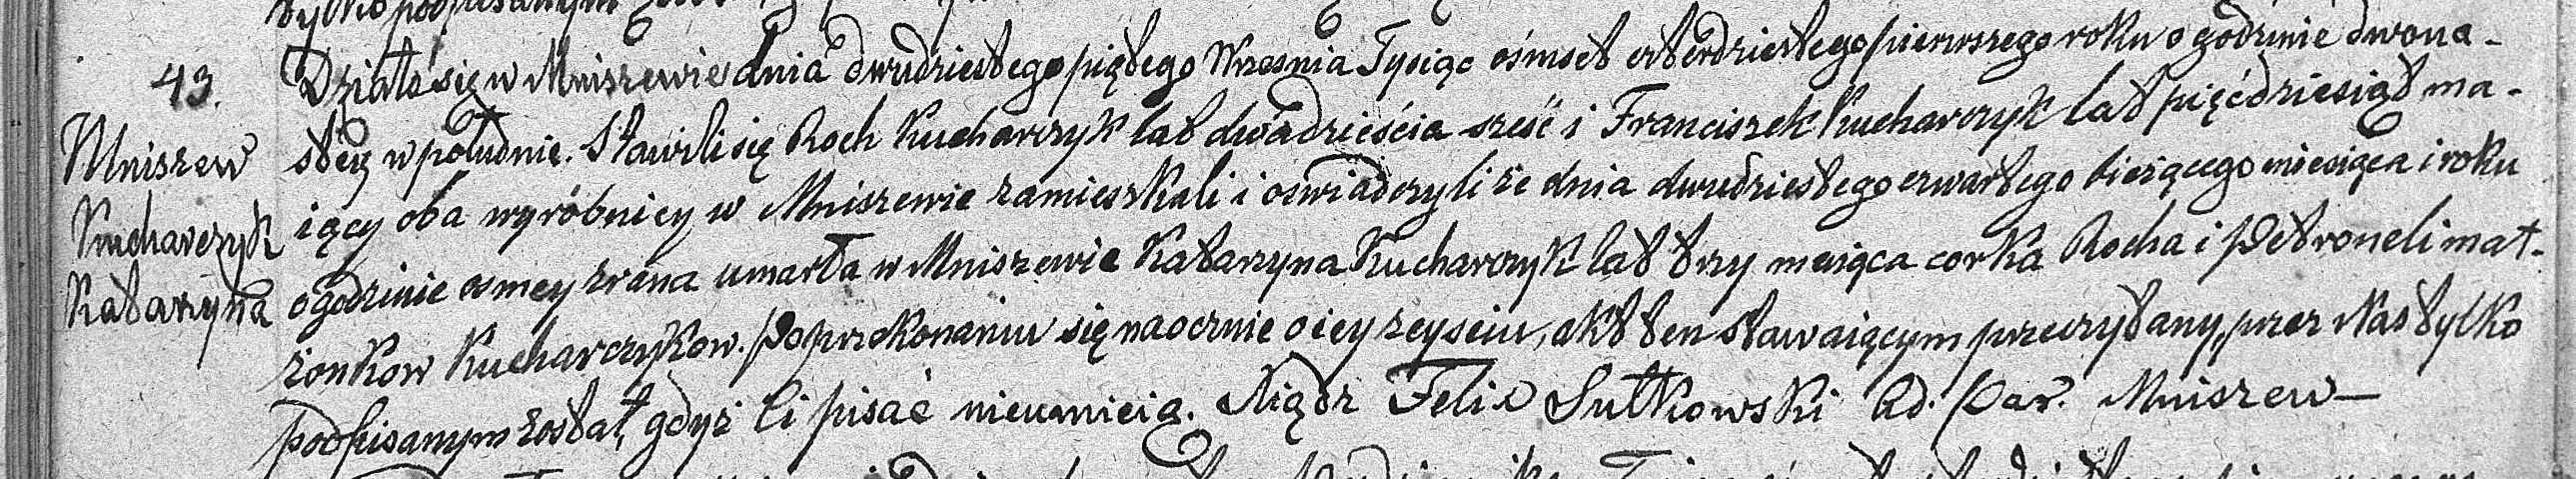 tylko podpisanym
43. Działo się w Mniszewie dnia dwudziestego piątego Września Tysiąc ośmset czterdziestego pierwszego roku o godzinie dwona-
Mniszew stey w południe. Stawili się Roch Kucharczyk lat dwadzieścia sześć i Franciszek Kucharczyk lat pięćdziesiąt ma-
Kucharczyk iący oba wyróbnicy w Mniszewie zamieszkali i oswiadczyli że dnia dwudziestego czwartego bieżącego miesiąca i roku
Katarzyna o godzinie osmey zrana umarła w Mniszewie Katarzyna Kucharczyk lat trzy maiąca corka Rocha i Petroneli mał-
żonkow Kucharczykow. Po przekonaniu się naocznie o iey zeysciu, akt ten stawaiącym przeczytany, przez Nas tylko
podpisanym został, gdyż Ci pisać nieumieią. Xiądz Felix Sułkowski Ad. Par. Mniszew—